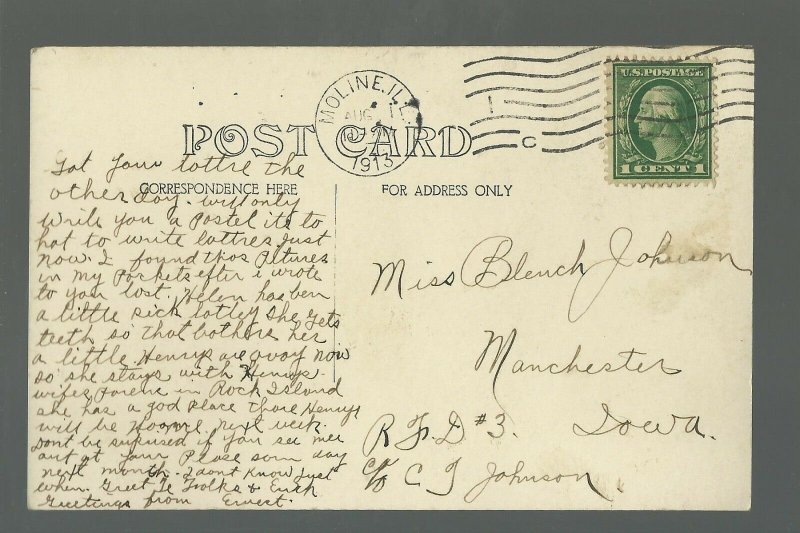 MOLINE, ILL.
AUG
1913
U.S. POSTAGE
1 CENT 1
POST CARD
C
CORRESPONDENCE HERE
FOR ADDRESS ONLY
Gat your lottre the
other day. will only
write you a Postel its to
hot to write lottres Just
now I found thos Pitures
in my Pockets efter i wrote
to you last. Helen has ben
a little sick lotley she gets
teeth so that bothers her
a little Henrys are avay now
so she stays with Henrys
wifes Parenc in Rock Island
she has a god place thare Henrys
will be Hoome next week.
Dont be suprised if you see mee
out at your Plase som day
next month. I dont Know just
when. Greet Te Folks &
Greetings from Ernest.
Miss Blench Johnson
Manchester
Iowa.
R F D #3.
c/o C J Johnson